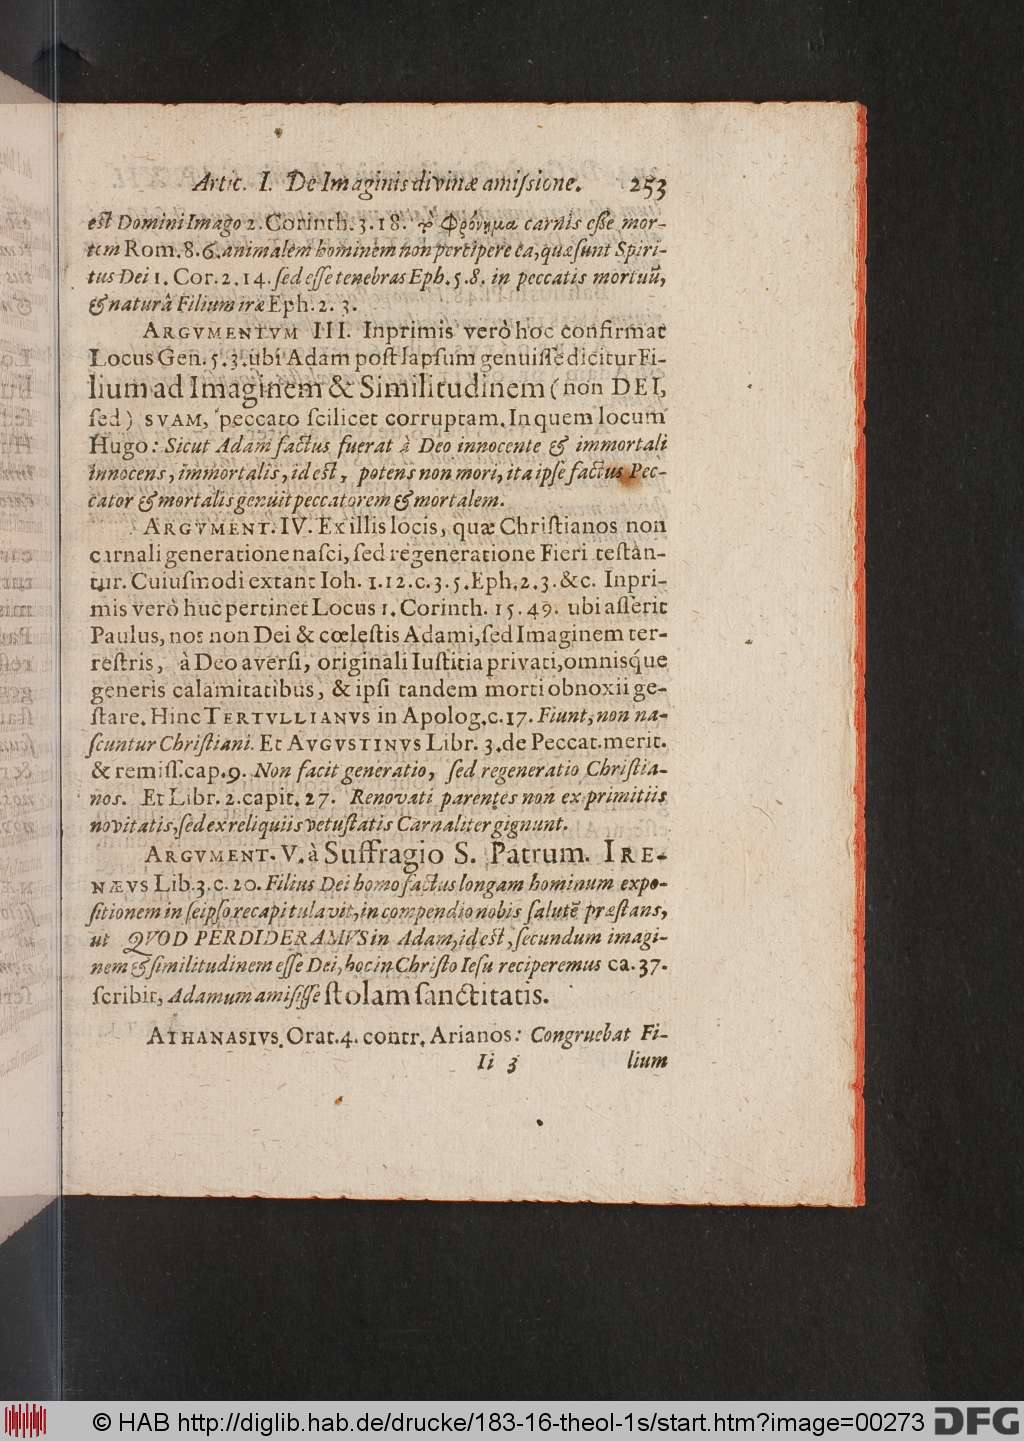 Artic. I. De Imaginis divinæ amiſsione. 253
eſt Domini Imago 2. Corinth. 3. 18. τὸ Φρόνημα carnis eſſe mor-
tem Rom. 8. 6. animalem hominem non percipere ea, quæ ſunt Spiri-
tus Dei 1. Cor. 2. 14. ſed eſſe tenebras Eph. 5. 8. in peccatis mortuũ,
& naturâ Filium iræ Eph. 2. 3.
ARGVMENTVM III. Inprimis verò hoc confirmat
Locus Gen. 5. 3. ubi Adam poſt lapſum genuiſſe dicitur Fi-
lium ad Imaginem & Similitudinem (non DEI,
ſed) SVAM, peccato ſcilicet corruptam. In quem locum
Hugo: Sicut Adam factus fuerat à Deo innocente & immortali
innocens, immortalis, id eſt, potens non mori, ita ipſe factus Pec-
cator & mortalis genuit peccatorem & mortalem.
ARGVMENT. IV. Ex illis locis, quæ Chriſtianos non
carnali generatione naſci, ſed regeneratione Fieri teſtan-
tur. Cuiuſmodi extant Ioh. 1. 12. c. 3. 5. Eph. 2. 3. &c. Inpri-
mis verò huc pertinet Locus 1. Corinth. 15. 49. ubi aſſerit
Paulus, nos non Dei & cœleſtis Adami, ſed Imaginem ter-
reſtris, à Deo averſi, originali Iuſtitia privati, omnisq́ue
generis calamitatibus, & ipſi tandem morti obnoxii ge-
ſtare. Hinc TERTVLLIANVS in Apolog. c. 17. Fiunt, non na-
ſcuntur Chriſtiani. Et AVGVSTINVS Libr. 3. de Peccat. merit.
& remiſſ. cap. 9. Non facit generatio, ſed regeneratio Chriſtia-
nos. Et Libr. 2. capit. 27. Renovati parentes non ex primitiis
novitatis, ſed ex reliquiis vetuſtatis Carnaliter gignunt.
ARGVMENT. V. à Suffragio S. Patrum. IRE-
NÆVS Lib. 3. c. 20. Filius Dei homo factus longam hominum expo-
ſitionem in ſeipſo recapitulavit, in compendio nobis ſalutẽ præſtans,
ut QVOD PERDIDERAMVS in Adam, id eſt, ſecundum imagi-
nem & ſimilitudinem eſſe Dei, hoc in Chriſto Ieſu reciperemus ca. 37.
ſcribit, Adamum amiſiſſe ſtolam ſanctitatis.
ATHANASIVS. Orat. 4. contr. Arianos: Congruebat Fi-
Ii 3 lium
© HAB http://diglib.hab.de/drucke/183-16-theol-1s/start.htm?image=00273 DFG